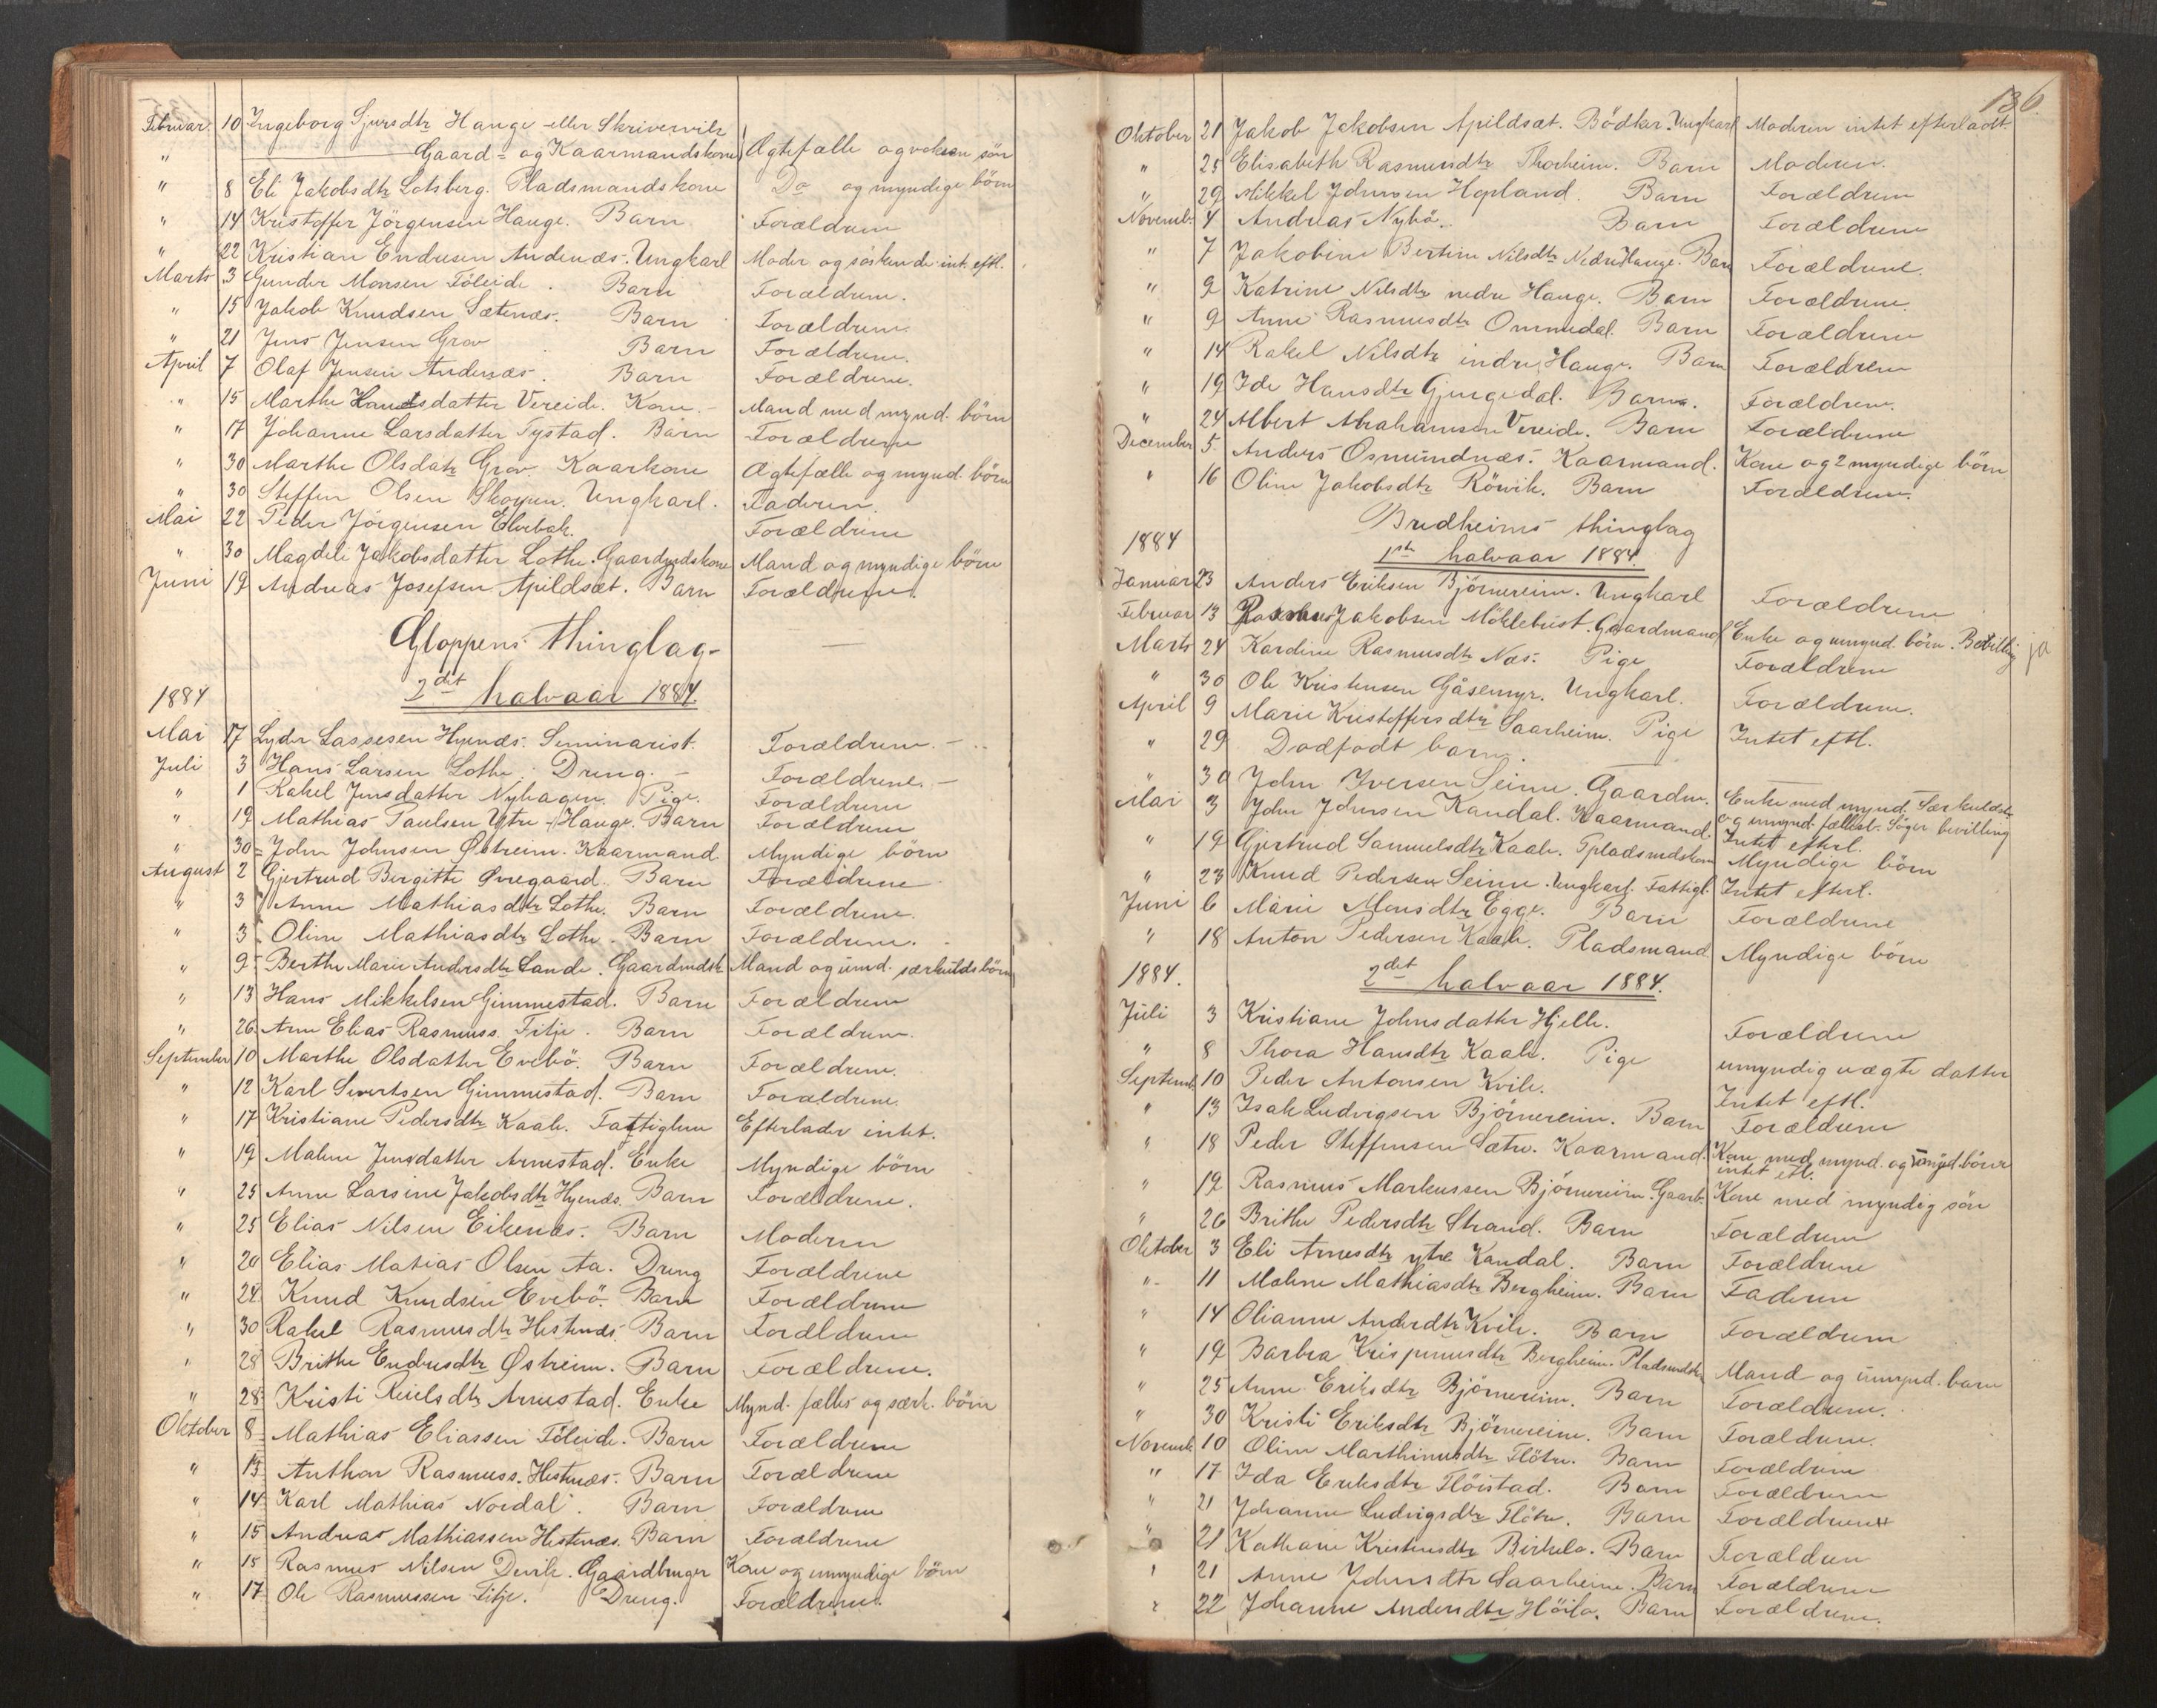 Februar. 10 Ingeborg Sjursdtr Hauge eller Skrivervik
" Gaard- og Kaarmandskone Ægtefælle og voksen sön
" 8 Eli Jakobsdtr Lotsberg. Pladsmandskone Do og myndige börn
" 14 Kristoffer Jörgensen Hauge. Barn Forældrene
" 22 Kristian Endresen Andenæs. Ungkarl Moder og söskende int. eftl.
Marts 3 Gunder Monsen Föleide. Barn Forældrene.
" 15 Jakob Knudsen Sætenæs. Barn Forældrene.
" 21 Jens Jensen Grov Barn Forældrene.
April 7 Olaf Jensen Andenæs. Barn Forældrene.
" 15 Marthe Hansdatter Vereide. Kone. Mand med mynd. börn
" 17 Johanne Larsdatter Tystad. Barn Forældrene
" 30 Marthe Olsdatr Grov Kaarkone Ægtefælle og mynd. börn
" 30 Steffen Olsen Skogen. Ungkarl. Faderen.
Mai 22 Peder Jörgensen Elvebak. Forældrene
" 30 Magdeli Jakobsdatter Lothe. Gaardmdskone Mand og myndige börn
Juni 19 Andreas Josefsen Apildsæt. Barn Forældrene.
Gloppens thinglag
1884 2det halvaar 1884.
Mai 17 Lyder Lassesen Hyenæs. Seminarist. Forældrene.
Juli 3 Hans Larsen Lothe. Dreng. Forældrene.
" 1 Rakel Jensdatter Nyhagen. Pige. Forældrene
" 19 Mathias Paulsen Ytre-Hauge. Barn Forældrene
" 30 John Johnsen Østreim. Kaarmand Myndige börn
August 2 Gjertrud Bergitte Øvregaard. Barn Forældrene
" 3 Anne Mathiasdtr Lothe. Barn Forældrene.
" 3 Oline Mathiasdtr Lothe. Barn Forældrene.
" 9 Berthe Marie Andersdtr Sande. Gaardmdsk. Mand og umd. særkuldsbörn
" 13 Hans Mikkelsen Gimmestad. Barn Forældrene
" 26 Arne Elias Rasmuss. Fitje. Barn Forældrene.
September 10 Marthe Olsdatter Evebö. Barn Forældrene.
" 12 Karl Sivertsen Gimmestad. Barn Forældrene.
" 17 Kristiane Pedersdtr Kaale. Fattiglem Efterlader intet.
" 19 Malene Jensdatter Arnestad. Enke Myndige börn
" 25 Anne Larsine Jakobsdtr Hyenæs. Barn Forældrene.
" 25 Elias Nilsen Eikenæs. Barn Moderen
" 20 Elias Matias Olsen Aa. Dreng Forældrene
" 24 Knud Knudsen Evebö. Barn Forældrene
" 30 Rakel Rasmusdtr Hestenæs. Barn Forældrene
" 28 Brithe Endresdtr Østreim. Barn Forældrene.
" 28 Kristi Reielsdtr Arnestad. Enke Mynd. fælles og særk. börn
Oktober 8 Mathias Eliassen Föleide. Barn Forældrene
" 13 Anthon Rasmuss. Hestenæs. Barn Forældrene
" 14 Karl Mathias Nordal. Barn Forældrene
" 15 Andreas Mathiassen Hestenæs. Barn Forældrene
" 15 Rasmus Nilsen Devik. Gaardbruger Kone og umyndige börn
" 17 Ole Rasmussen Fitje. Dreng. Forældrene.
136.
Oktober 21 Jakob Jakobsen Apildsæt. Bödker. Ungkarl Moderen intet efterladt
" 25 Elisabeth Rasmusdtr Thorheim. Barn Moderen.
" 29 Mikkel Johnsen Hopland. Barn Forældrene
Novemb. 4 Andreas Nybö. Barn Forældrene
" 7 Jakobine Bertine Nilsdtr Nedre Hauge. Barn Forældrene.
" 9 Katrine Nilsdtr nedre Hauge. Barn Forældrene.
" 9 Anne Rasmusdtr Ommedal. Barn Forældrene
" 14 Rakel Nilsdtr indre Hauge. Barn Forældrene
" 19 Ide Hansdtr Gjengedal. Barn. Forældrene.
" 24 Albert Abrahamsen Vereide. Barn Forældrene
December 5 Anders Osmundnæs. Kaarmand. Kone og 2 myndige börn
" 16 Oline Jakobsdtr Rövik. Barn Forældrene.
Bredheims thinglag
1884 1ste halvaar 1884.
Januar 23 Anders Eriksen Björnereim. Ungkarl Forældrene
Februar 13 Rasmus Jakobsen Möklebust. Gaardmand Enke og umynd. börn. Bevilling ja
Marts 24 Kardine Rasmusdtr Næs. Pige Forældrene
" 30 Ole Kristensen Gåsemyr. Ungkarl. Forældrene.
April 9 Marie Kristoffersdtr Saarheim. Pige Intet eftl.
" 29 Dödfödt barn.
" 30 John Iversen Seime. Gaardm. Enke med mynd. Særkuldsb.
og umynd. fællesb. Söger bevilling
Mai 3 John Johnsen Kandal. Kaarmand. Intet efterl.
" 19 Gjertrud Samuelsdtr Kaale. Pladsmdskone Myndige börn
" 23 Knud Pedersen Seime. Ungkarl. Fattigl. Intet efterl.
Juni 6 Marie Monsdtr Egge. Barn Forældrene
" 18 Anton Pedersen Kaale. Pladsmand Myndige börn
1884. 2det halvaar 1884.
Juli 3 Kristiane Johnsdatter Hjelle. Forældrene
" 8 Thora Hansdtr Kaale. Pige umyndig uægte datter
Septemb. 10 Peder Antonsen Kvile. Intet eftl.
" 13 Isak Ludvigsen Björnereim. Barn Forældrene
" 18 Peder Steffensen Sætre. Kaarmand. Kone med mynd. og umynd. börn
intet eftl.
" 19 Rasmus Markussen Björnereim. Gaarb. Kone med myndig sön
" 26 Brithe Pedersdtr Strand. Barn Forældrene
Oktober 3 Eli Arnesdtr ytre Kandal. Barn Forældrene
" 11 Malene Mathiasdtr Bergheim. Barn Faderen
" 14 Olianne Andersdtr Kvile. Barn Forældrene
" 19 Barbra Krispinusdtr Bergheim. Pladsmdsk. Mand og umynd. barn
" 25 Anne Eriksdtr Björnereim. Barn Forældrene.
" 30 Kristi Eriksdtr Björnereim. Barn Forældrene.
Novemb. 10 Oline Marthinusdtr Flötre. Barn Forældrene
" 17 Ida Eriksdtr Flöistad. Barn Forældrene
" 21 Johanne Ludvigsdtr Flötre. Barn Forældrene
" 21 Kathrine Kristensdtr Birkelo. Barn Forældren
" 21 Anne Johnsdtr Saarheim. Barn Forældrene
" 22 Johanne Andersdtr Höilo. Barn Forældrene.